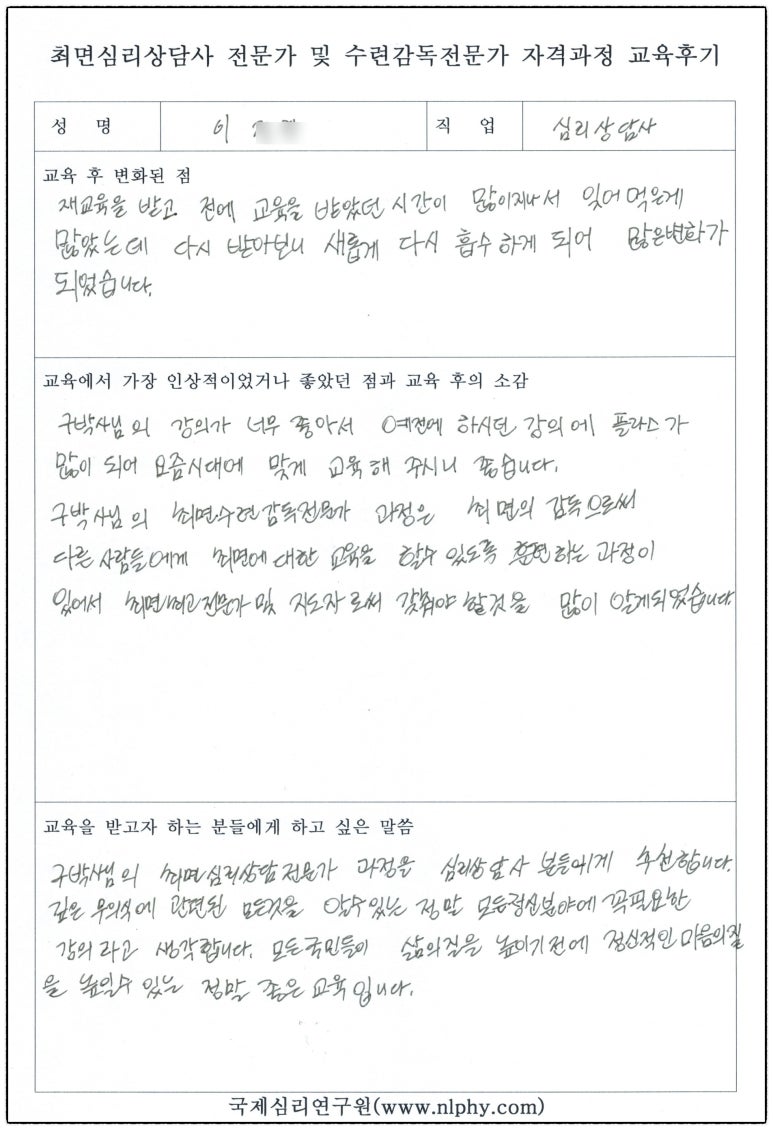 최면심리상담사 전문가 및 수련감독전문가 자격과정 교육후기
성 명 이 직 업 심리상담사
교육 후 변화된 점
재교육을 받고 전에 교육을 받았던 시간이 많이지나서 잊어먹은게
많았는데 다시 받아보니 새롭게 다시 흡수하게 되어 많은변화가
되었습니다.
교육에서 가장 인상적이었거나 좋았던 점과 교육 후의 소감
구박사님의 강의가 너무 좋아서 예전에 하시던 강의에 플라스가
많이 되어 요즘시대에 맞게 교육해 주시니 좋습니다.
구박사님의 최면수련감독전문가 과정은 최면의 감독으로써
다른 사람들에게 최면에 대한 교육을 할수 있도록 훈련하는 과정이
있어서 최면최고전문가 및 지도자로써 갖춰야 할것을 많이 알게되었습니다
교육을 받고자 하는 분들에게 하고 싶은 말씀
구박사님의 최면심리상담전문가 과정을 심리상담사 분들에게 추천합니다.
깊은 무의식에 관련된 모든것을 알수있는 정말 모든정신분야에 꼭필요한
강의라고 생각합니다. 모든국민들이 삶의질을 높이기전에 정신적인 마음의질
을 높일수 있는 정말 좋은 교육입니다.
국제심리연구원(www.nlphy.com)